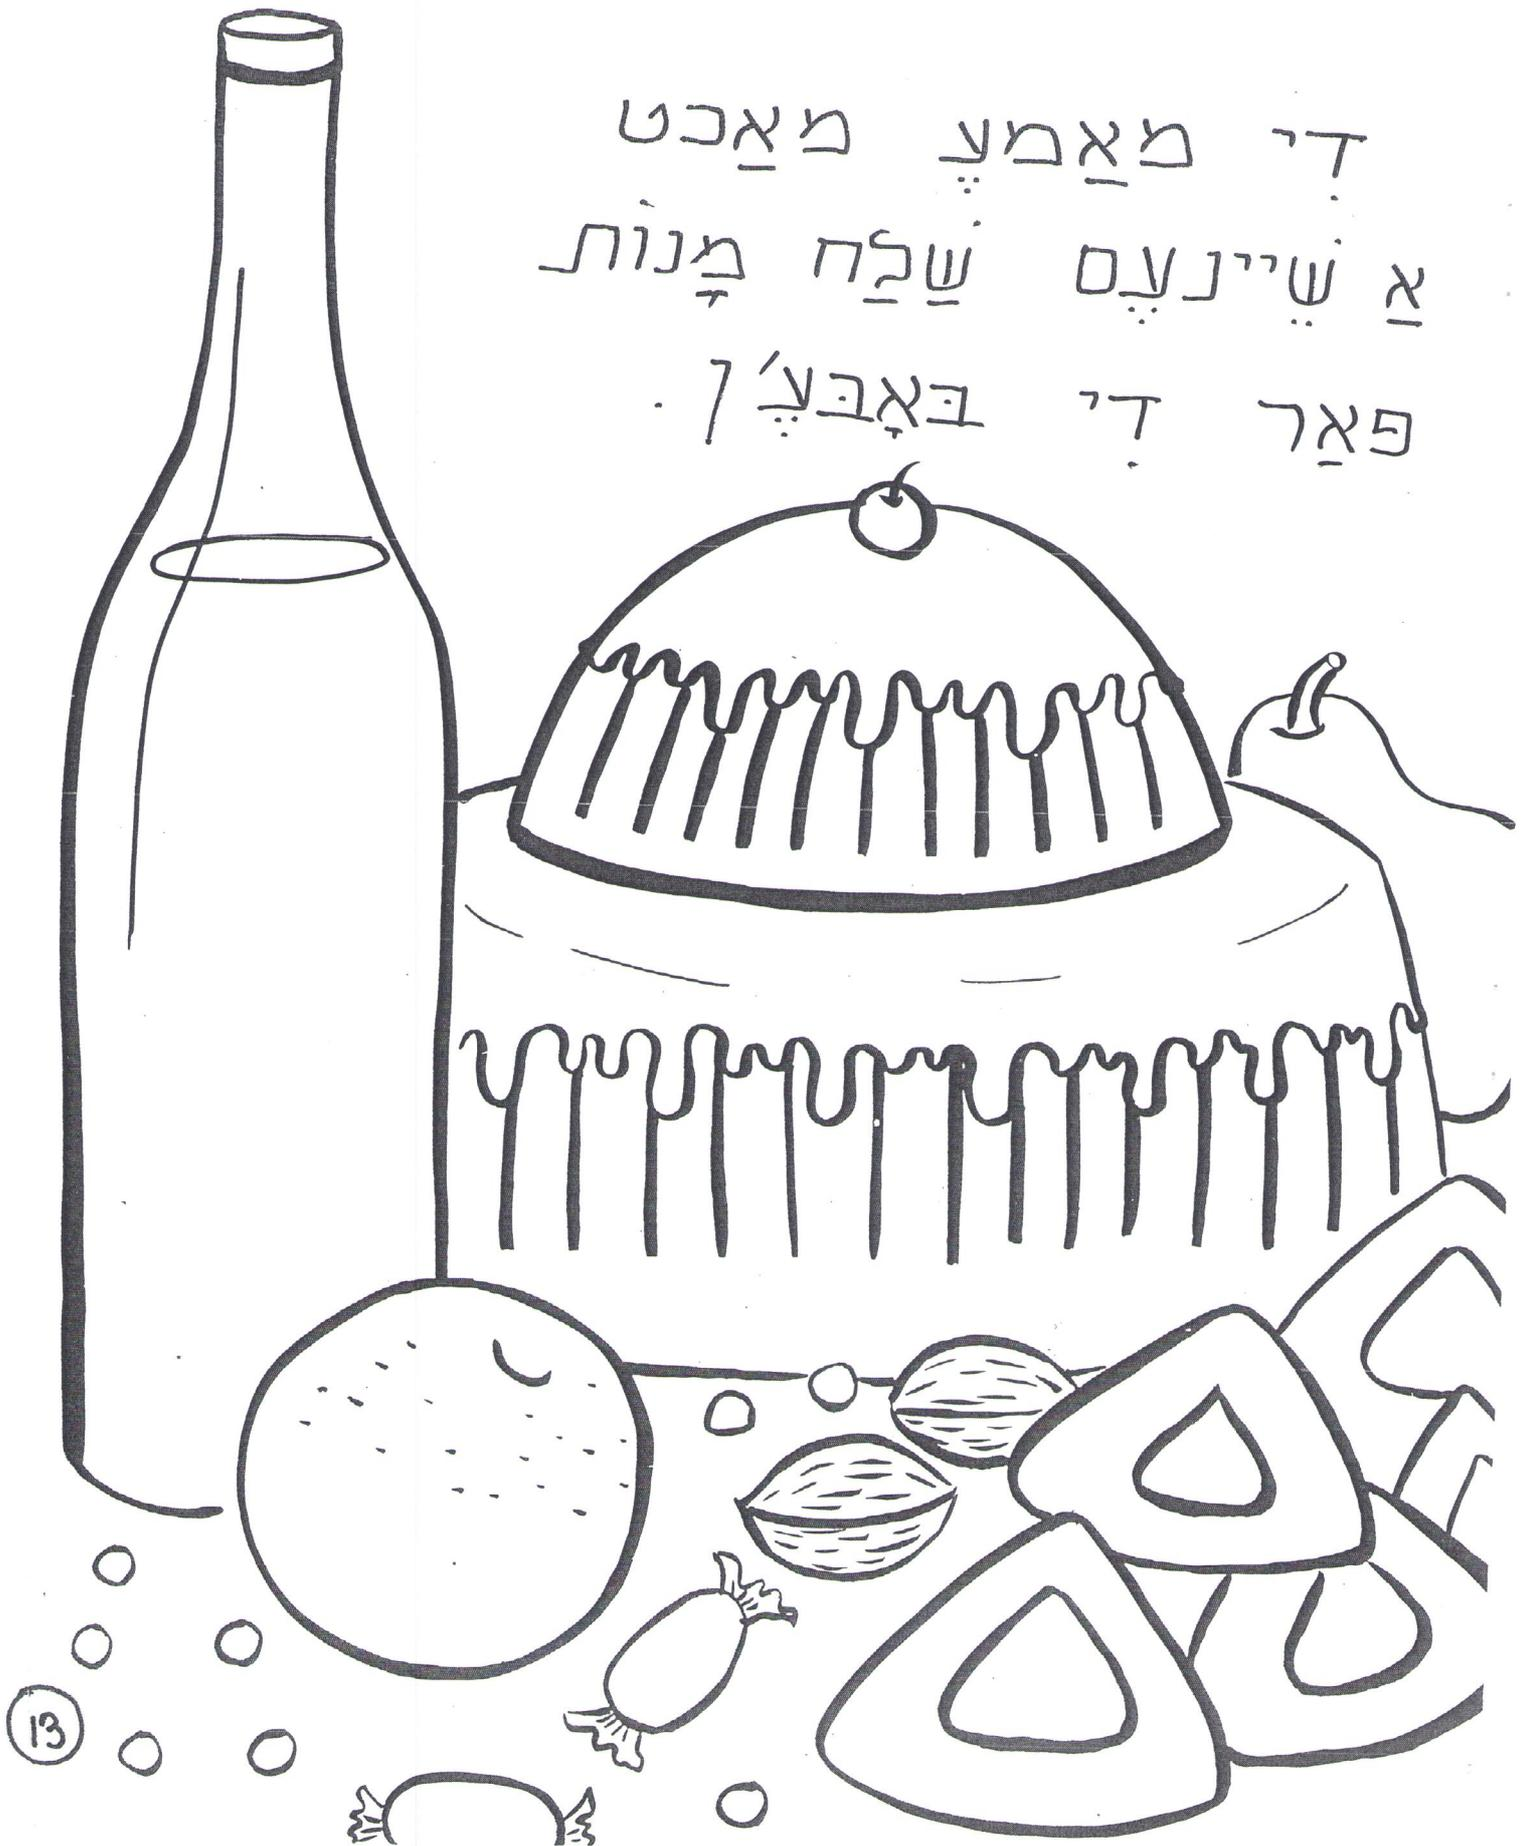 דִי מאַמעֶ מאַכט
אַ שֵׁיינעֶם שַׁלַח מָנוֹת
פאַר דִי בּאָבּעֶ'ן.
13